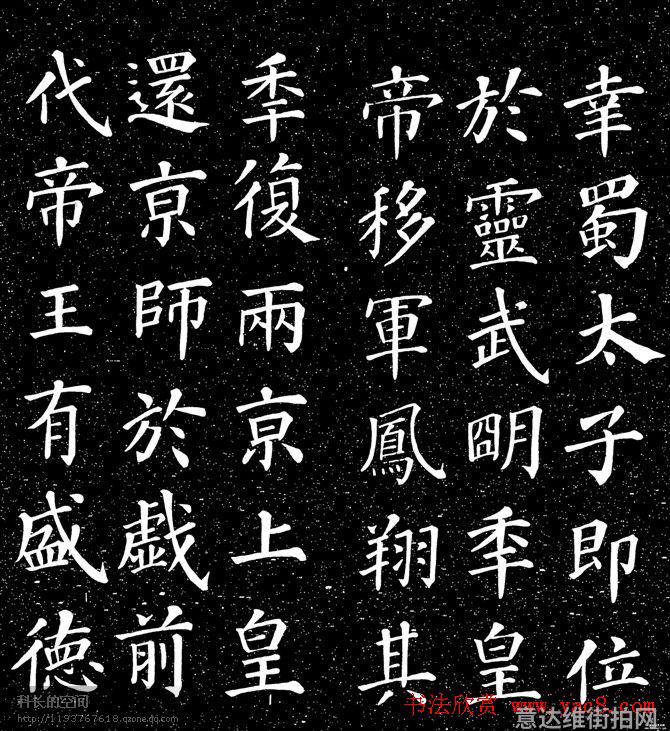 幸蜀太子即位
於靈武朙秊皇
帝移軍鳳翔其
秊復兩亰上皇
還亰師於戯前
代帝王有盛徳
科长的空间
http://1193767618.qzone.qq.com
书法欣赏 www.yac8.com
意达维街拍网